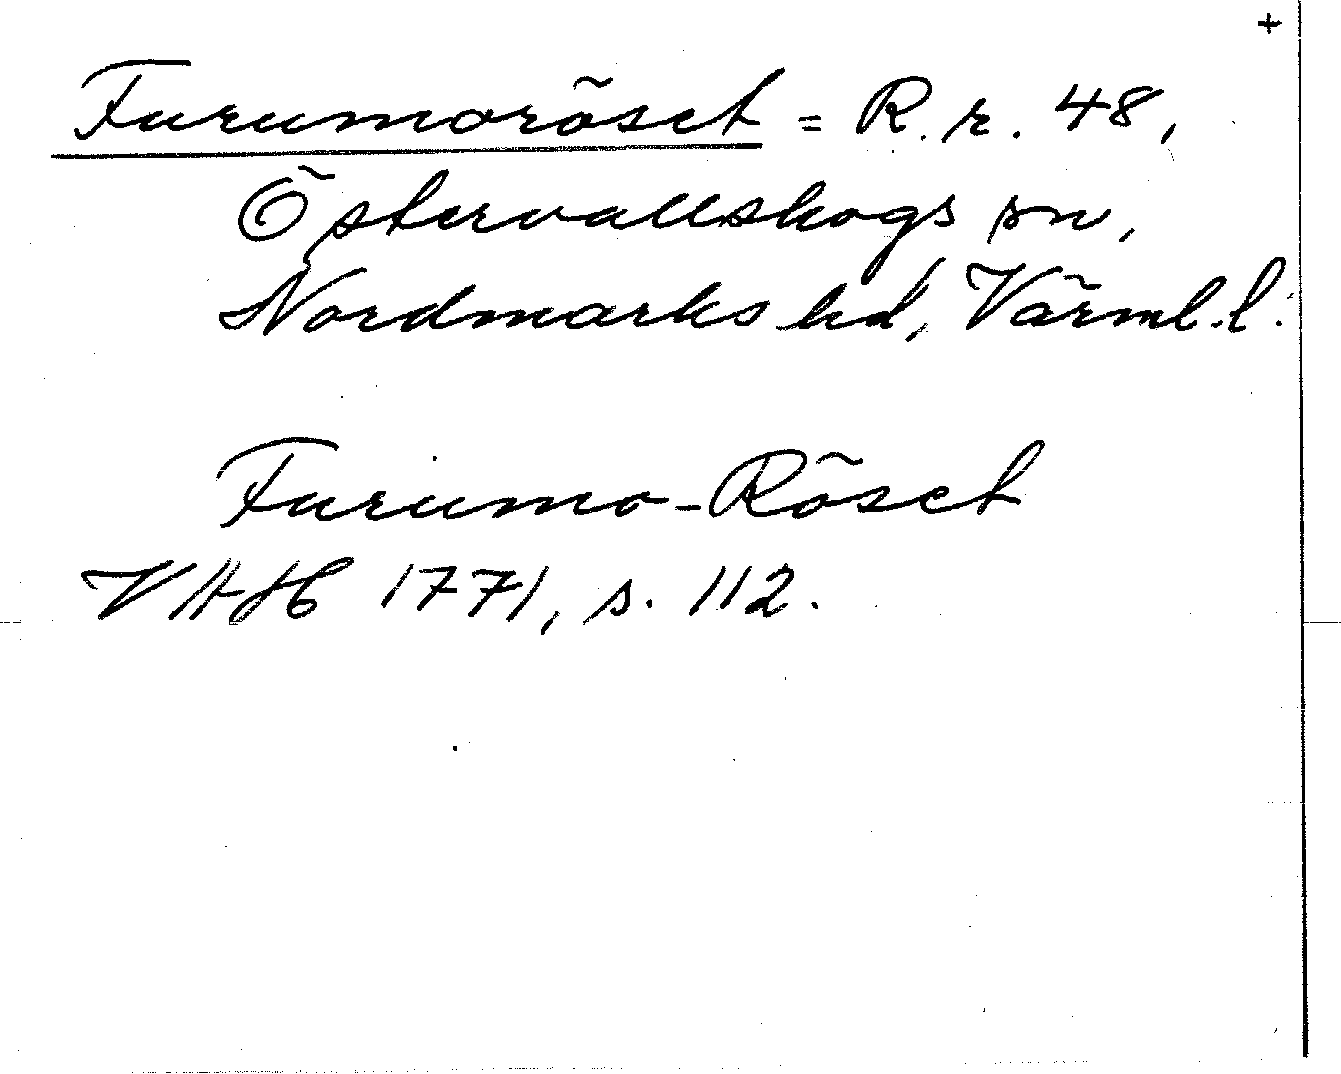 +
Furumoröset = R. r. 48,
Östervallskogs sn,
Nordmarks hd, Värml. l.
Furumo-Röset
VHAH 1771, s. 112.